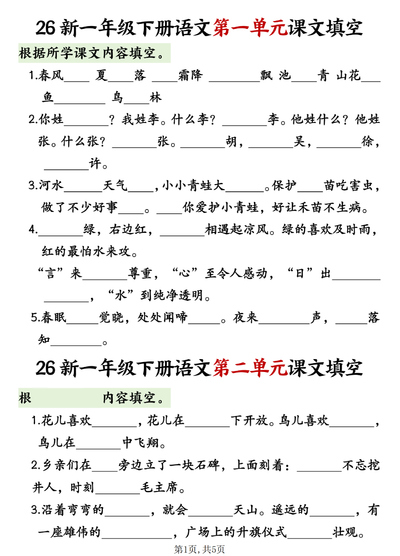 26新一年级下册语文第一单元课文填空
根据所学课文内容填空。
1.春风____ 夏____落 ____霜降 ________飘 池____青 山花____
鱼________ 鸟____林
2.你姓________？我姓李。什么李？_______李。他姓什么？他姓
张。什么张？_______张。_______胡，_______吴，_______徐，
_______许。
3.河水______天气____，小小青蛙大______。保护____苗吃害虫，
做了不少好事____。____你爱护小青蛙，好让禾苗不生病。
4.________绿，右边红，________相遇起凉风。绿的喜欢及时雨，
红的最怕水来攻。
“言”来________尊重，“心”至令人感动，“日”出________
________，“水”到纯净透明。
5.春眠_____觉晓，处处闻啼_____。夜来________声，_____落
知________。
26新一年级下册语文第二单元课文填空
根 内容填空。
1.花儿喜欢_______，花儿在_______下开放。鸟儿喜欢_______，
鸟儿在_______中飞翔。
2.乡亲们在____旁边立了一块石碑，上面刻着：_______不忘挖
井人，时刻_______毛主席。
3.沿着弯弯的_______，就会_______天山。遥远的_______，有
一座雄伟的_________，广场上的升旗仪式_______壮观。
第1页，共5页